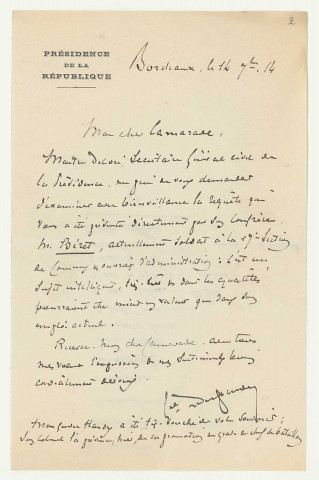 2
PRÉSIDENCE
DE LA
RÉPUBLIQUE
Bordeaux, le 14 7bre 14
Mon cher Camarade,
Maitre Decori, Secrétaire Général civil de
la Présidence, me prie de vous demander
d'examiner avec bienveillance la requête qui
vous a été présentée directement par son confrère
M. Biret, actuellement soldat à la 19e Section
de Commis & ouvriers d'administration : c'est un
sujet intelligent, très dont les qualités
pourraient être mises en valeur que dans son
emploi actuel.
Recevez, mon cher Camarade, avec tous
mes voeux l'expression de mes sentiments bien
cordialement dévoués.
Mon gendre Hardy a été très touché de votre souvenir ;
son Colonel l'a prévenu, hier, de sa promotion au grade de chef de bataillon